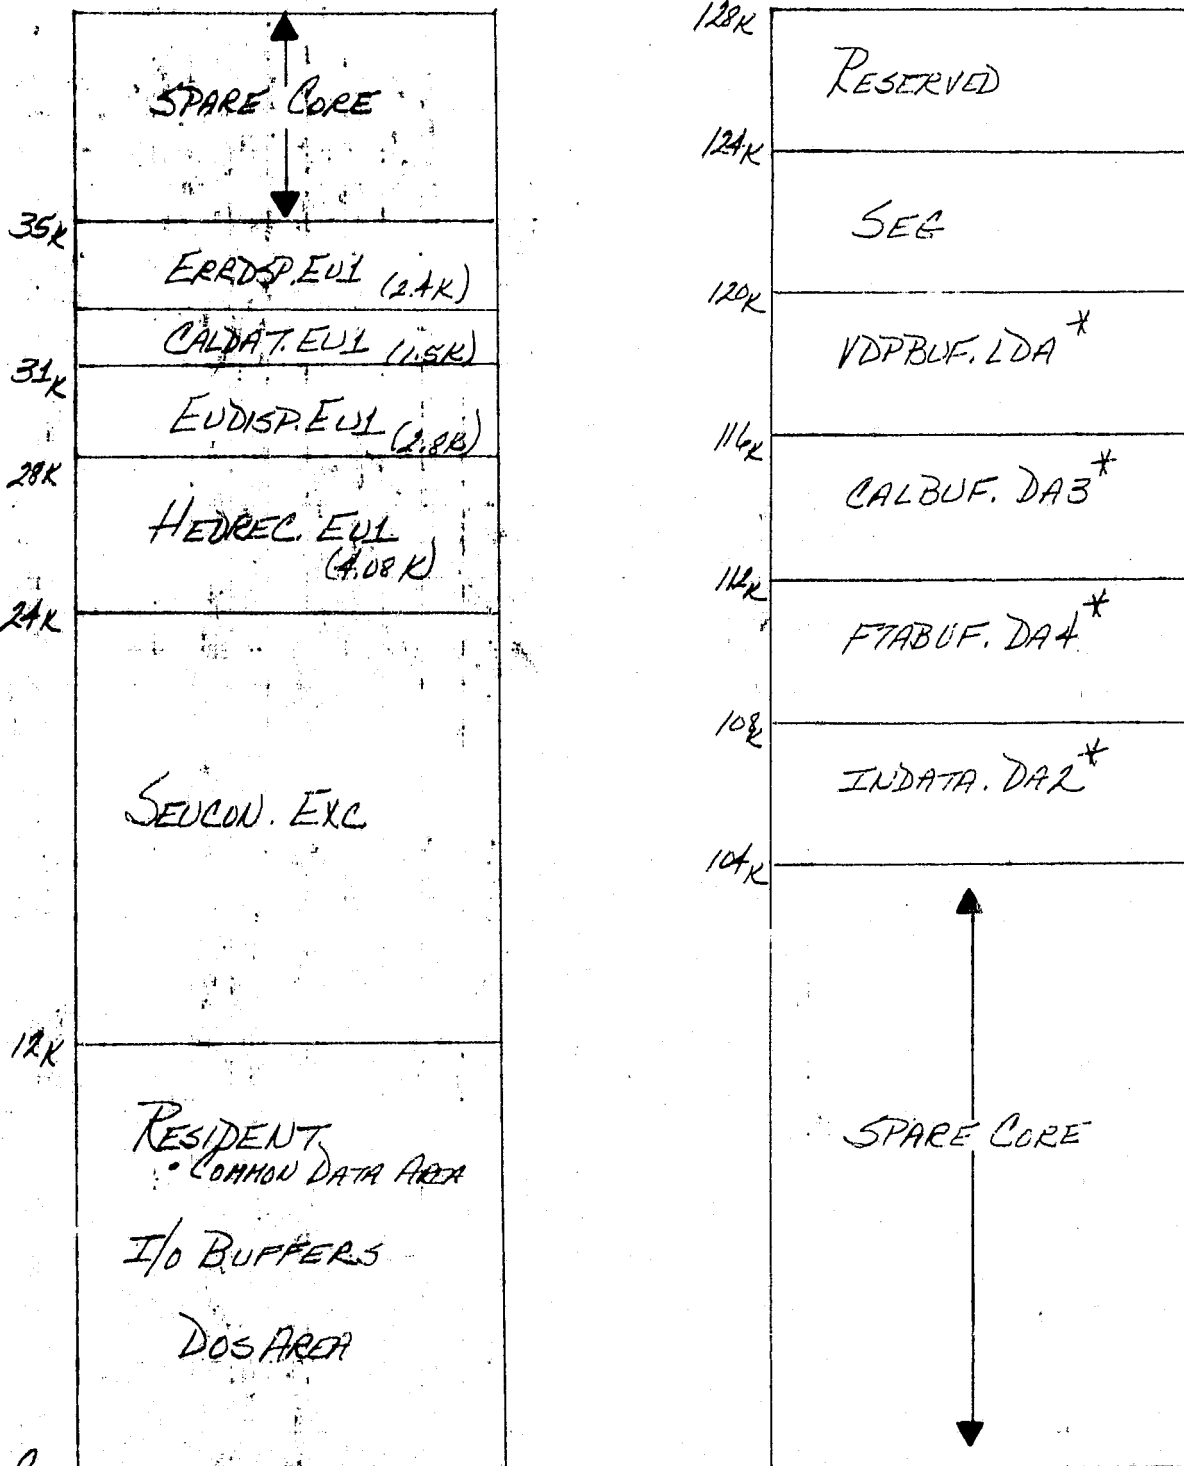 SPARE CORE
35K
ERRDSP.EU1 (2.4K)
CALDAT.EU1 (1.5K)
31K
EUDISP.EU1 (2.8K)
28K
HEDREC.EU1
(4.08K)
24K
SEUCON.EXC
12K
RESIDENT
• COMMON DATA AREA
I/O BUFFERS
DOS AREA
128K
RESERVED
124K
SEG
120K
VDPBUF.LDA*
116K
CALBUF.DA3*
112K
FTABUF.DA4*
108K
INDATA.DA2*
104K
SPARE CORE